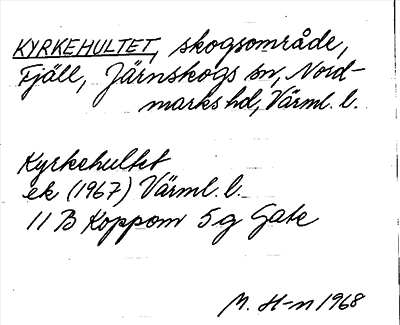 KYRKEHULTET, skogsområde,
Fjäll, Järnskogs sn, Nord-
marks hd, Värml. l.
Kyrkehultet
ek (1967) Värml. l.
11 B Koppom 5 g Gate
M. H-n 1968